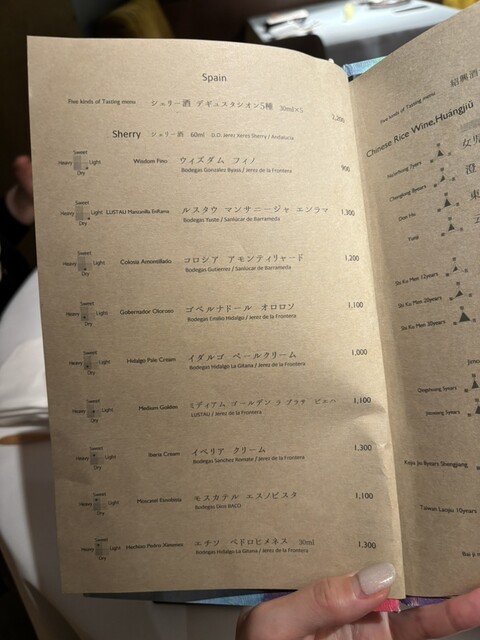 Spain
Five kinds of Tasting menu シェリー酒 デギュスタシオン5種 30ml×5 2,200
Sherry シェリー酒 60ml D.O. Jerez Xeres Sherry / Andalucia
Sweet
Heavy Light
Dry
Wisdom Fino ウィズダム フィノ 900
Bodegas Gonzalez Byass / Jerez de la Frontera
Sweet
Heavy Light
Dry
LUSTAU Manzanilla ルスタウ マンサニージャ エンラマ 1,300
Bodegas Yuste / Sanlucar de Barrameda
Sweet
Heavy Light
Dry
Colosia Amontillado コロシア アモンティリャード 1,200
Bodegas Gutierrez / Sanlucar de Barrameda
Sweet
Heavy Light
Dry
Gobernador Oloroso ゴベルナドール オロロソ 1,100
Bodegas Emilio Hidalgo / Jerez de la Frontera
Sweet
Heavy Light
Dry
Hidalgo Pale Cream イダルゴ ペールクリーム 1,000
Bodegas Hidalgo La Gitana / Jerez de la Frontera
Sweet
Heavy Light
Dry
Medium Golden ミディアム ゴールデン ラ プラサ ビエハ 1,100
LUSTAU / Jerez de la Frontera
Sweet
Heavy Light
Dry
Iberia Cream イベリア クリーム 1,300
Bodegas Sanchez Romate / Jerez de la Frontera
Sweet
Heavy Light
Dry
Moscatel モスカテル エスノビスタ 1,100
Bodegas Dios BACO
Sweet
Heavy Light
Dry
Pedro Ximenez エチソ ペドロヒメネス 30ml 1,300
Bodegas Hidalgo La Gitana / Jerez de la Frontera
紹興酒
Five kinds of Tasting menu
Chinese Rice Wine,Huángjiǔ
7years
8years
Dong Hu
Shi Ku Men 12years
Shi Ku Men 20years
Shi Ku Men 30years
5years
5years
Taiwan Laojiu 10years